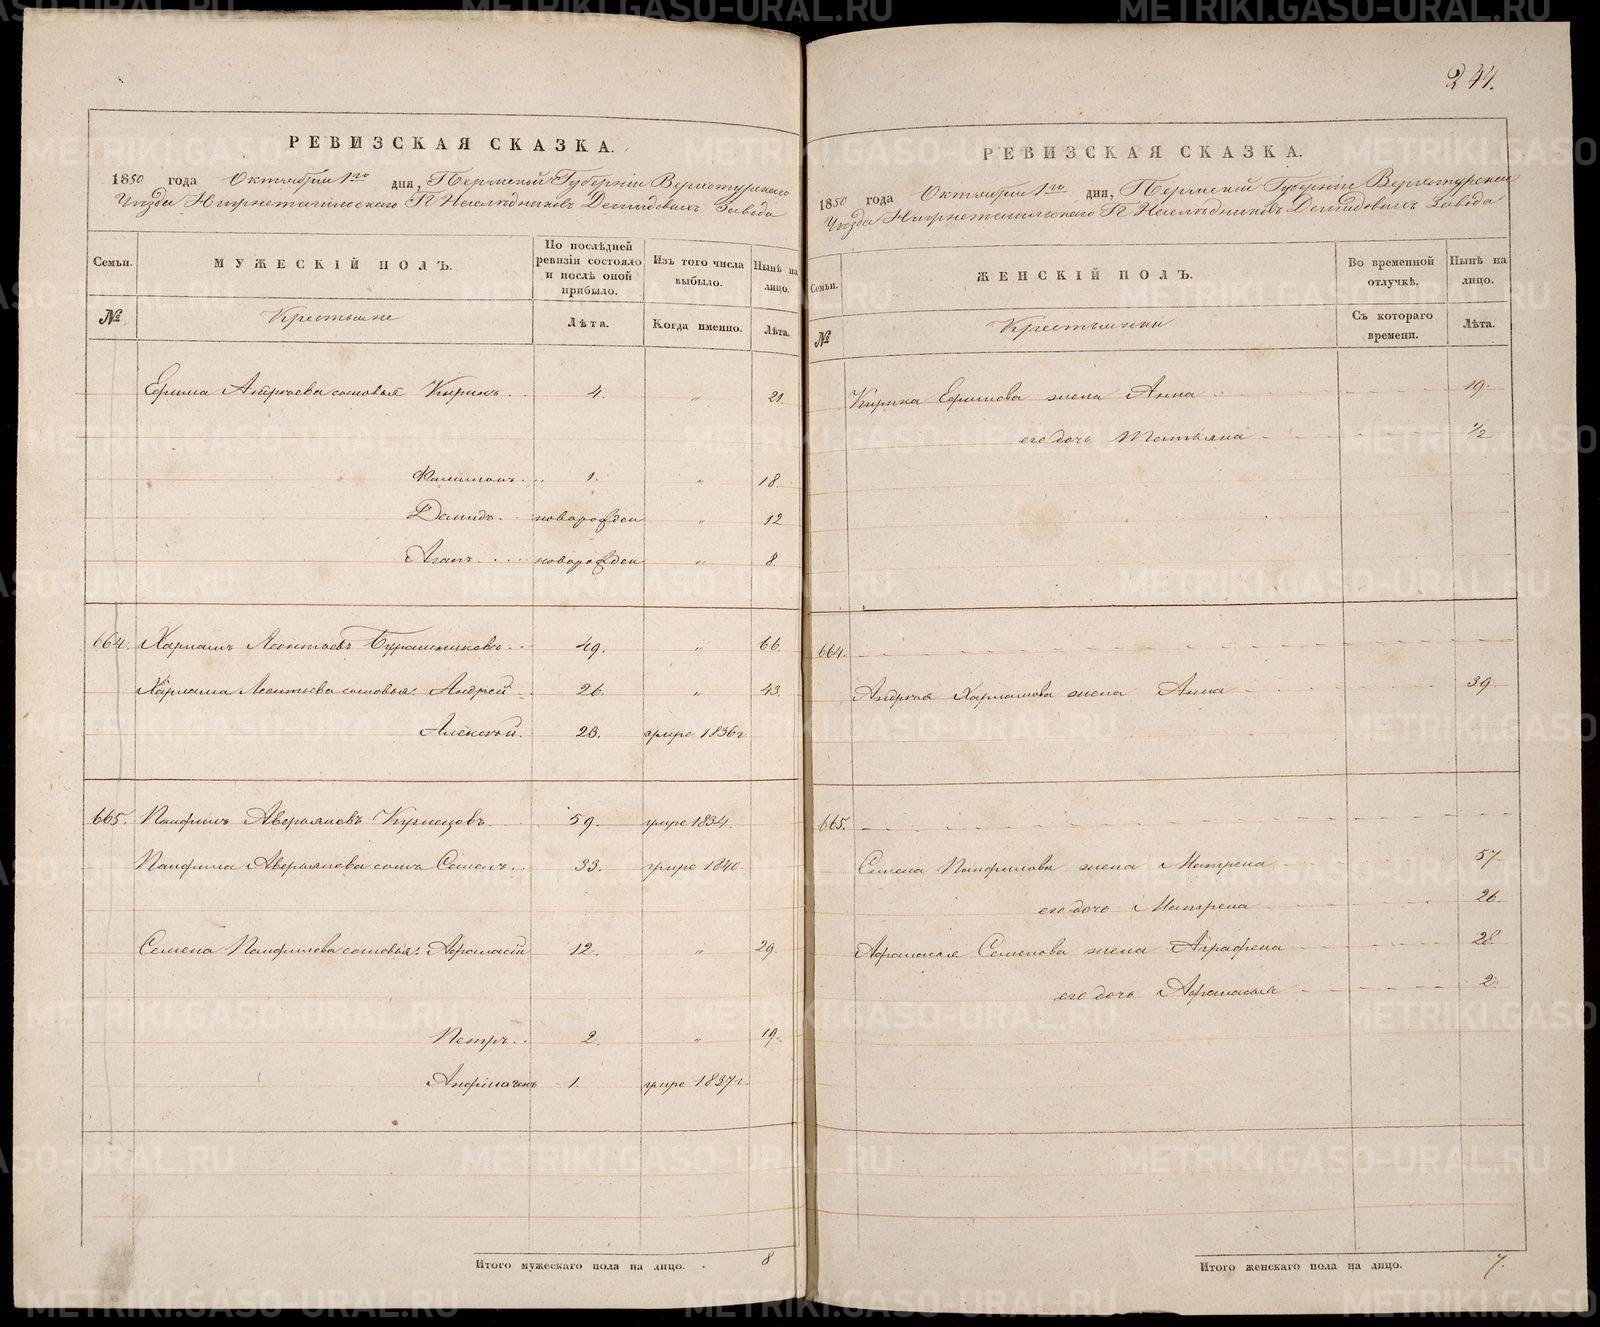 244.
РЕВИЗСКАЯ СКАЗКА.
1850 года Октября 1го дня, Пермской Губерніи Верхотурскаго
Уѣзда Нижнетагильскаго Г. Наслѣдниковъ Демидовыхъ Завода
Семьи. МУЖЕСКІЙ ПОЛЪ. По послѣдней ревизіи состояло и послѣ оной прибыло. Изъ того числа выбыло. Нынѣ на лицо.
№ Крестьяне Лѣта. Когда именно. Лѣта.
Ефима Андреева сыновья Кирикъ. 4. " 21
Филимонъ. 1. " 18
Демидъ. новорожден " 12
Агапъ. новорожден " 8
664. Харламъ Леонтьевъ 49. " 66.
Харлама Леонтьева сыновья: Андрей 26. " 43.
Алексѣй. 23. умре 1836 г
665. Панфилъ Аверьяновъ Кузнецовъ 59. умре 1834.
Панфила Аверьянова сынъ Семенъ. 33. умре 1840
Семена Панфилова сыновья: Афанасій 12. " 29
Петръ. 2. " 19.
1. умре 1837 г.
Итого мужескаго пола на лицо. 8
РЕВИЗСКАЯ СКАЗКА.
1850 года Октября 1го дня, Пермской Губерніи Верхотурскаго
Уѣзда Нижнетагильскаго Г. Наслѣдниковъ Демидовыхъ Завода
Семьи. ЖЕНСКІЙ ПОЛЪ. Во временной отлучкѣ. Нынѣ на лицо.
№ Крестьянки Съ котораго времени. Лѣта.
Кирика Ефимова жена Анна 19.
его дочь Татьяна 1/2
664.
Андрея Харламова жена Анна 39
665.
Семена Панфилова жена Матрена 57.
его дочь Матрена 26.
Афанасья Семенова жена Аграфена 28
его дочь Афанасья 2.
Итого женскаго пола на лицо. 7.
METRIKI.GASO-URAL.RU